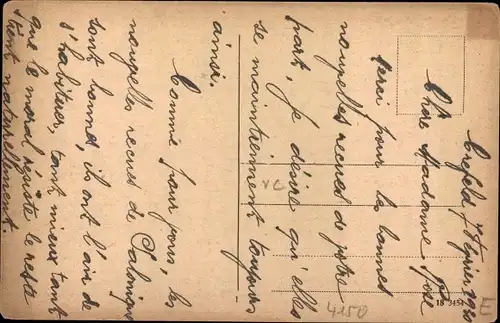 Crefeld 7 février 1920
Chère Madame Rose
Merci pour les bonnes
nouvelles recues de votre
part, je désire qu'elles
se maintiennent toujours
ainsi.
Comme pour vous, les
nouvelles recues de Salonique
sont bonnes, ils ont l'air de
s'habituer, tant mieux tant
que le moral résiste le reste
tient naturellement.
VC
4150
18 3454
E